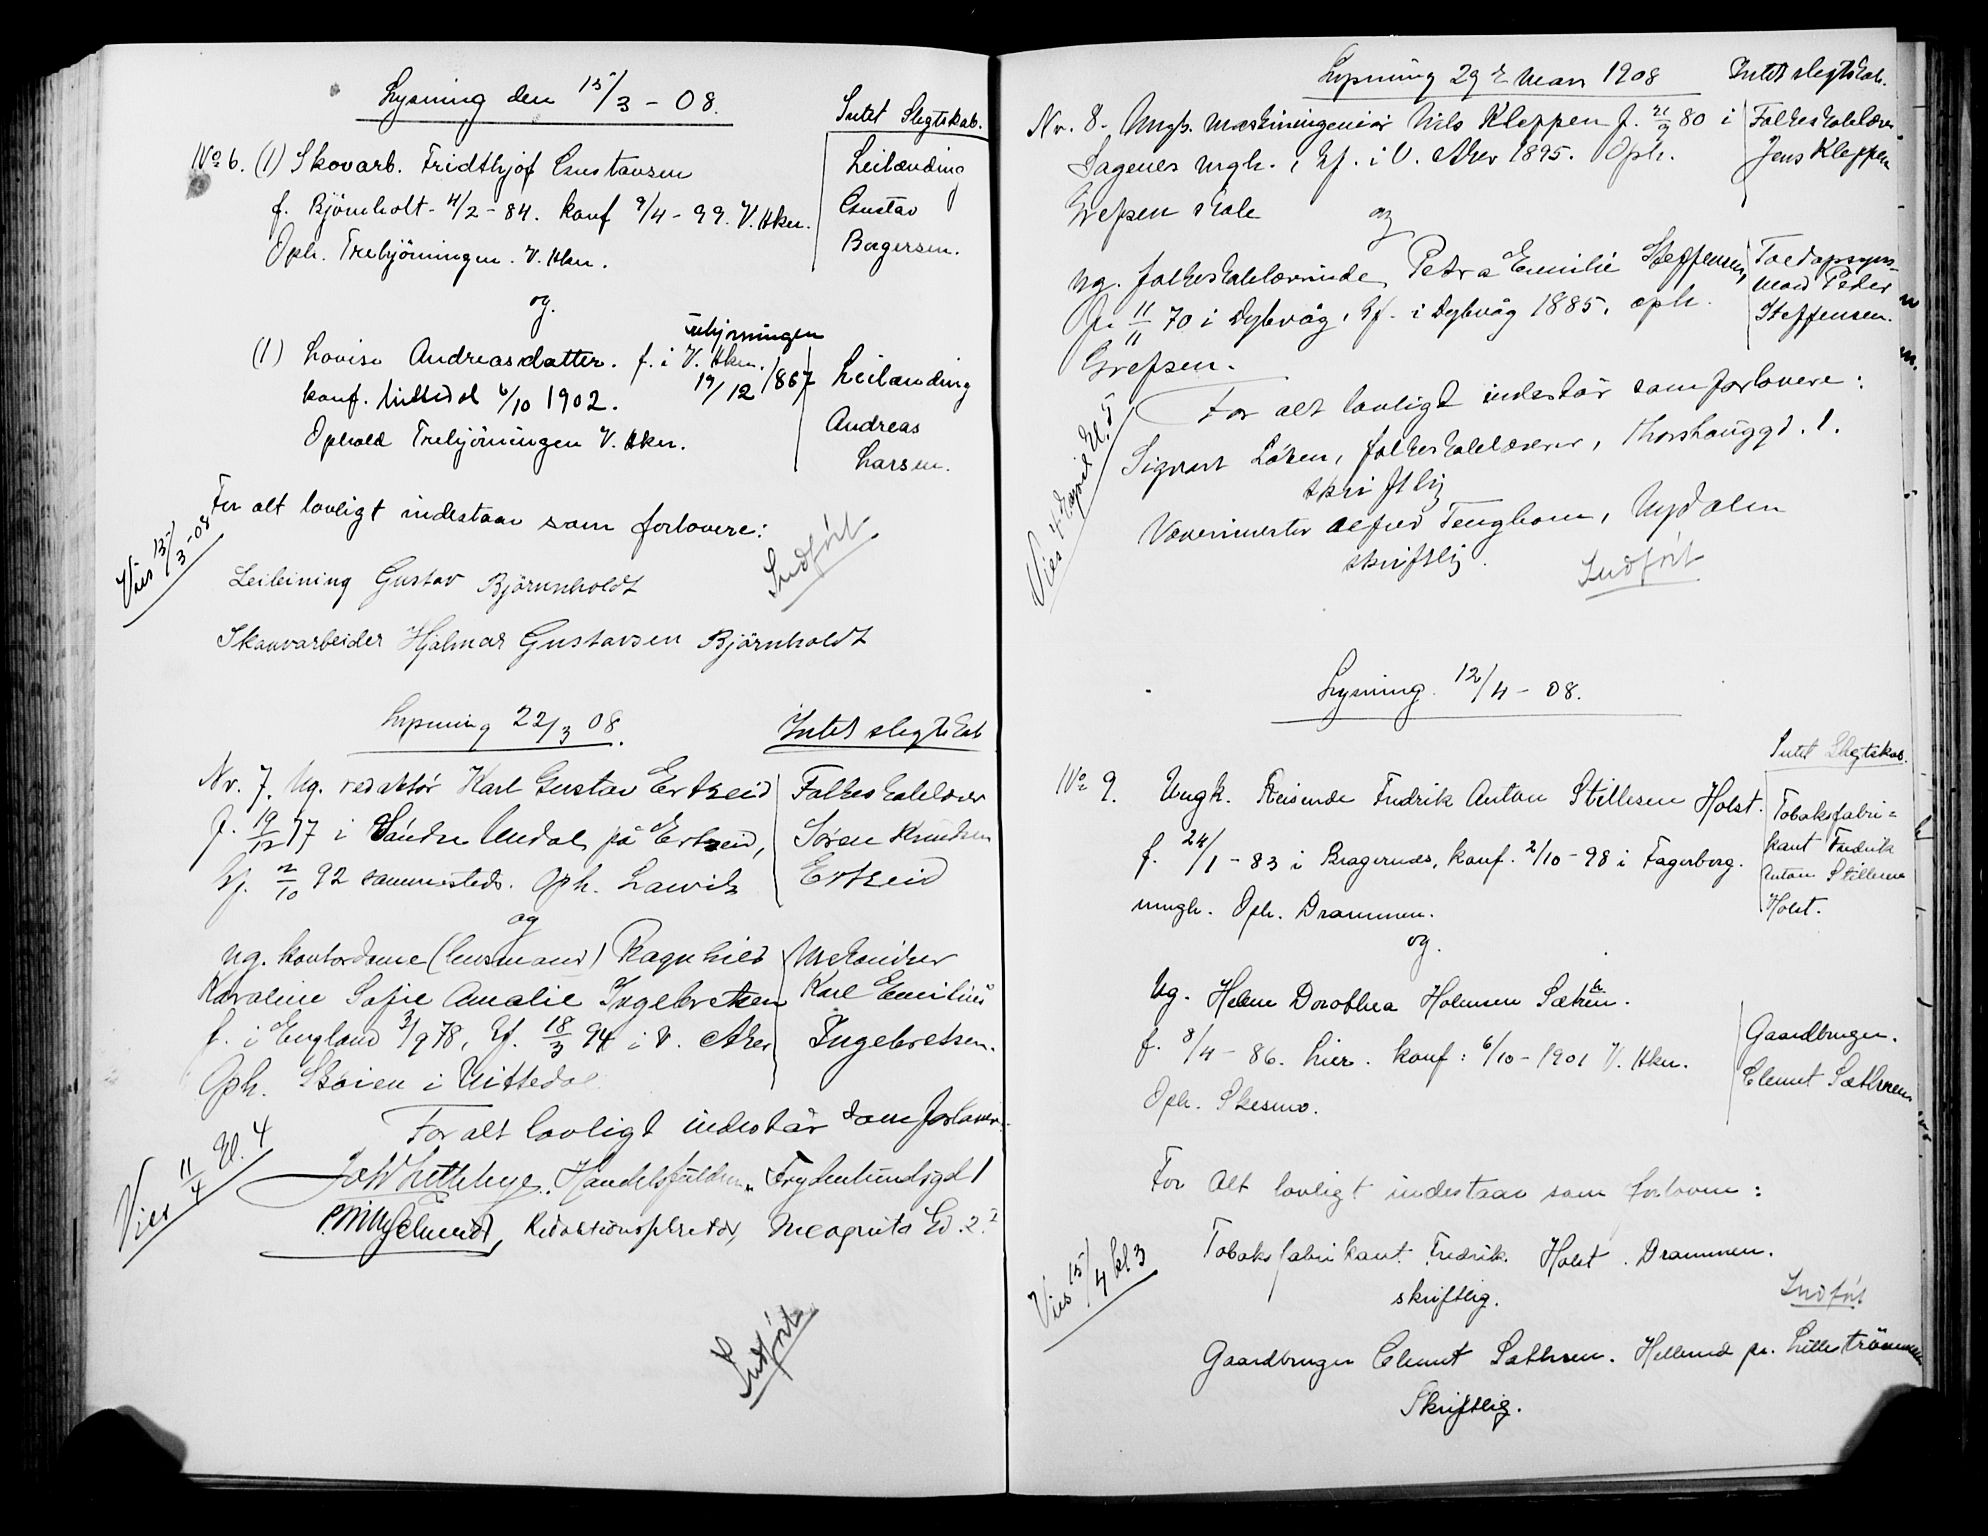 Lysning den 15/3 - 08.
Intet Slegtskab.
No 6. (1) Skovarb. Fridthjof Gustavsen
f. Björnholt - 4/2 - 84. konf 9/4 - 99. V. Aker.
Oph. Trehjörningen. V. Aker.
Leilænding
Gustav
Borgersen.
og.
Trehjörningen
(1) Lovise Andreasdatter. f. i V. Aker.
19/12 1867
konf. Nittedal 6/10 1902.
Ophold Trehjörningen V. Aker.
Leilænding
Andreas
Larsen.
For alt lovligt indestaar som forlovere:
Vies 15/3-08
Indført
Leilening Gustav Björnholdt
Skauvarbeider Hjalmar Gustavsen Björnholdt
Lysning 22/3 08.
Intet slegtskab
Nr. 7. Ug. redaktør Karl Gustav Ertzeid
f. 19/12 77 i Søndre Undal på Ertzeid,
kf. 2/10 92 sammesteds. Oph. Larvik
Folkeskolelærer
Søren Knudsen
Ertzeid
og
Ug. kontordame (lensmand) Ragnhild
Karoline Sofie Amalie Ingebretsen
f. i England 3/9 78, kf. 18/3 94 i V. Aker
Oph. Skøien i Nittedal
Mekaniker
Karl Emilius
Ingebretsen.
For alt lovligt indestår som forlovere:
Vies 11/4 kl. 4
Handelsfuldm. Frydenlundsgd 1
Redaktionssekretær, Incognito
Indført
Lysning 29 de Mars 1908
Intet slegtskab.
Nr. 8. Ungk. Maskiningeniør Nils Kleppen f. 21/9 80 i
Sagenes mgh., kf. i V. Aker 1895. Oph.
Grefsen skole
Folkeskolelærer
Jens Kleppen
og
Ug. folkeskolelærerinde Petra Emilie Steffensen,
f. 11/11 70 i Dybvåg, kf. i Dybvåg 1885, oph.
Grefsen.
Toldopsyns-
mand Peder
Steffensen.
For alt lovligt indestår som forlovere:
Sigvart Löken, folkeskolelærer, Thorshauggd. 1.
skriftlig
Vævermester Alfred Tengbom, Nydalen
skriftlig.
Vies 4 April kl. 5
Indført
Lysning. 12/4 - 08.
Intet Slegtskab.
No 9. Ungk. Reisende Fredrik Anton Stillesen Holst.
f. 24/1 - 83 i Bragernes, konf. 2/10 - 98 i Fagerborg.
mngh. Oph. Drammen.
Tobaksfabri=
kant Fredrik
Anton Stillesen
Holst.
og.
Ug. Helene Dorothea Holmsen Sæthren.
f. 8/4 - 86. hier. konf: 6/10 - 1901 V. Aker.
Oph. Skesmo.
Gaardbruger.
Clemet Sæthren
For Alt lovligt indestaar som forlovere:
Tobaksfabrikant Fredrik Holst. Drammen.
skriftlig.
Vies 15/4 kl 3
Indført
Gaardbruger Clemet Sæthren. Hellerud pr. Lilleströmmen
Skriftlig.